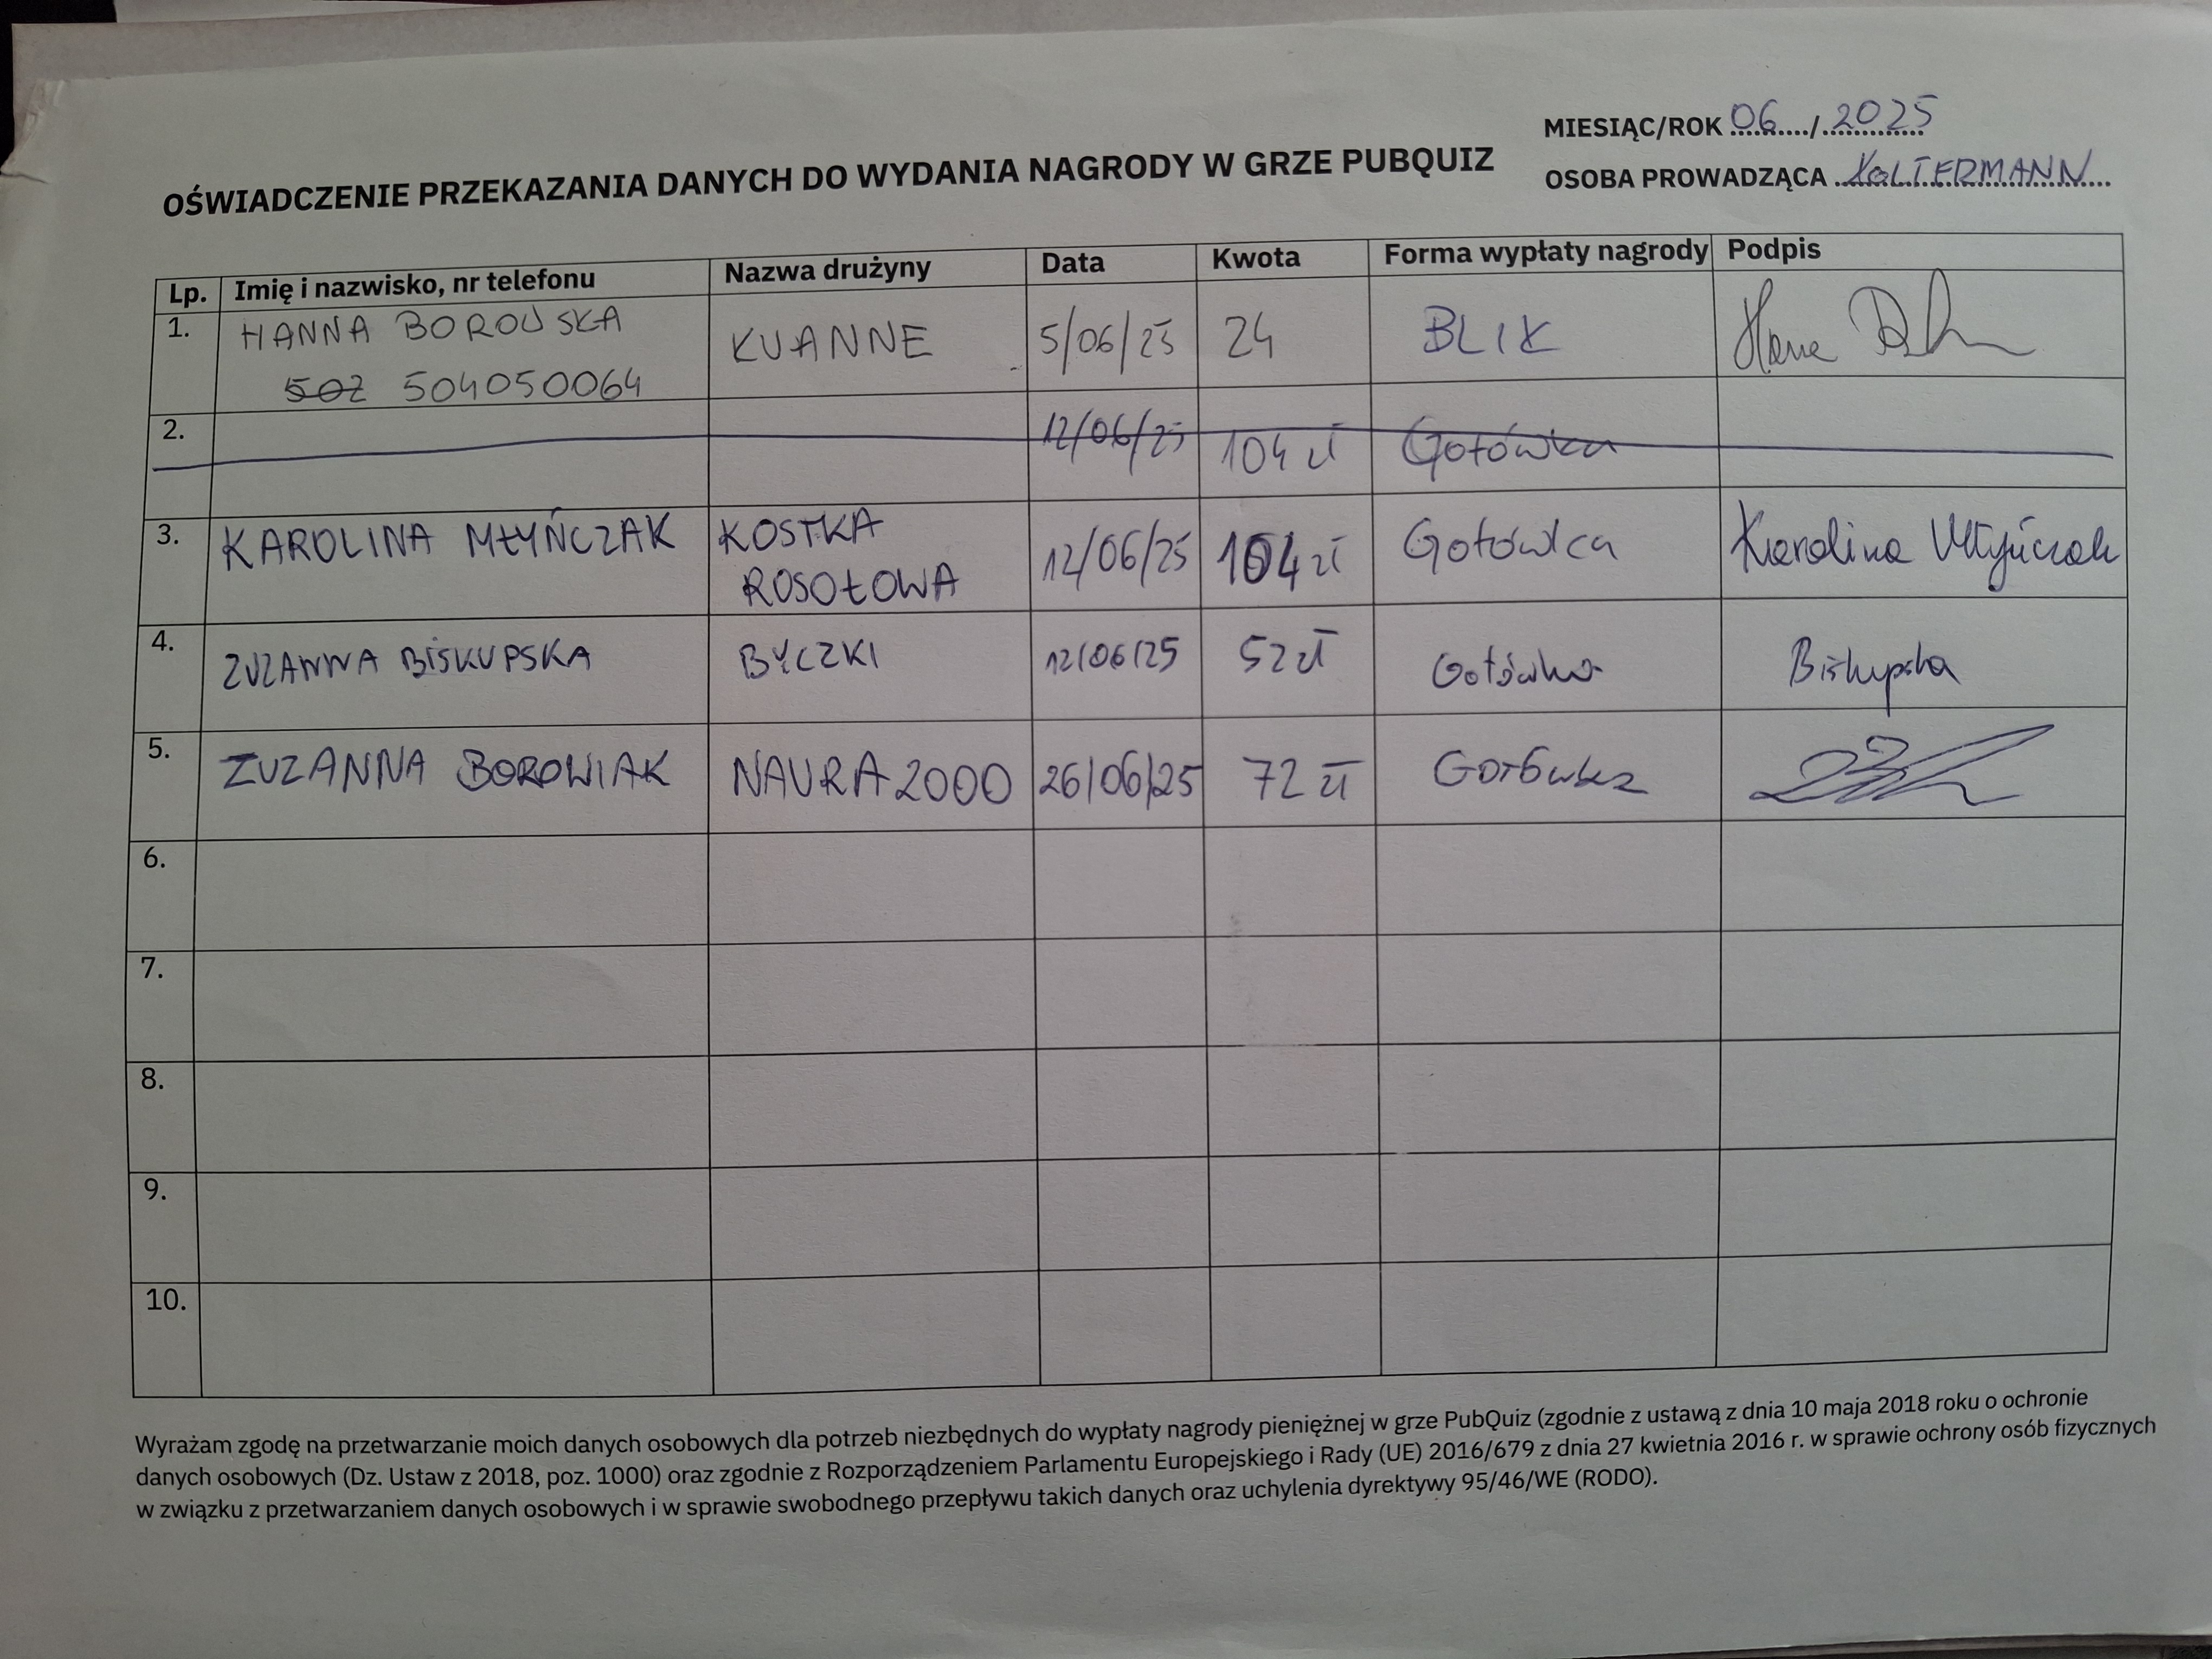 MIESIĄC/ROK 06 / 2025
OSOBA PROWADZĄCA KOLTERMANN
OŚWIADCZENIE PRZEKAZANIA DANYCH DO WYDANIA NAGRODY W GRZE PUBQUIZ
Lp. Imię i nazwisko, nr telefonu Nazwa drużyny Data Kwota Forma wypłaty nagrody Podpis
1. HANNA BOROWSKA KUANNE 5/06/25 24 BLIK Hanna
502 504050064
2. 12/06/25 104 zł Gotówka
3. KAROLINA MŁYŃCZAK KOSTKA 12/06/25 104 zł Gotówka Karolina Młyńczak
ROSOŁOWA
4. ZUZANNA BISKUPSKA BYCZKI 12/06/25 52 zł Gotówka Biskupska
5. ZUZANNA BOROWIAK NAURA 2000 26/06/25 72 zł Gotówka
6.
7.
8.
9.
10.
Wyrażam zgodę na przetwarzanie moich danych osobowych dla potrzeb niezbędnych do wypłaty nagrody pieniężnej w grze PubQuiz (zgodnie z ustawą z dnia 10 maja 2018 roku o ochronie
danych osobowych (Dz. Ustaw z 2018, poz. 1000) oraz zgodnie z Rozporządzeniem Parlamentu Europejskiego i Rady (UE) 2016/679 z dnia 27 kwietnia 2016 r. w sprawie ochrony osób fizycznych
w związku z przetwarzaniem danych osobowych i w sprawie swobodnego przepływu takich danych oraz uchylenia dyrektywy 95/46/WE (RODO).